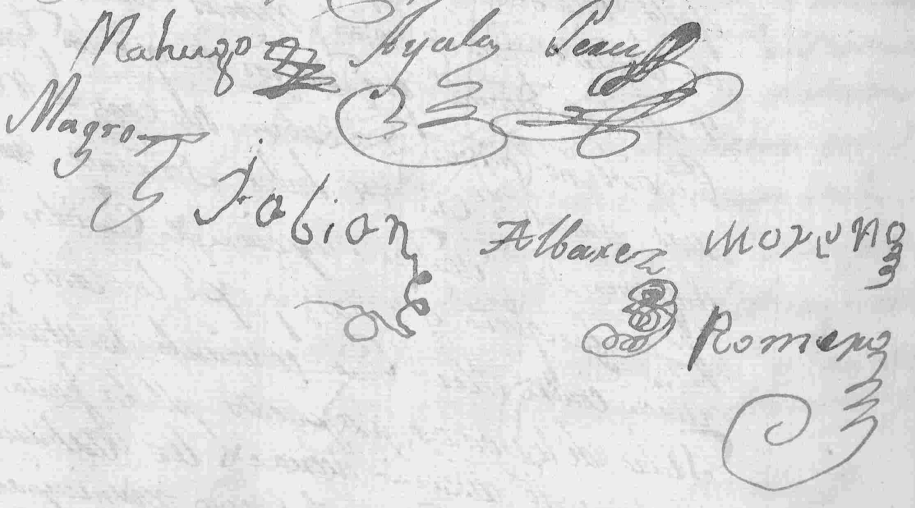 Mahugo Ayala
Magro
Fabian Albarez Moreno
Romero